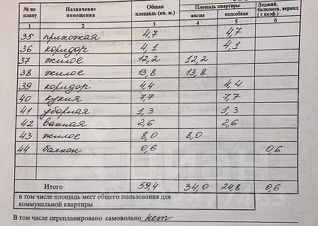 № по плану Назначение помещения Общая площадь (кв. м.) Площадь квартиры жилая подсобная Лоджий, балконов, веранд (с коэф.)
1 2 3 4 5 6
35 прихожая 4,7 4,7
36 коридор 4,1 4,1
37 жилое 12,2 12,2
38 жилое 13,8 13,8
39 коридор 4,4 4,4
40 кухня 7,7 7,7
41 уборная 1,3 1,3
42 ванная 2,6 2,6
43 жилое 8,0 8,0
44 балкон 0,6 0,6
Итого 59,4 34,0 24,8 0,6
в том числе площадь мест общего пользования для
коммунальной квартиры
В том числе перепланировано самовольно нет